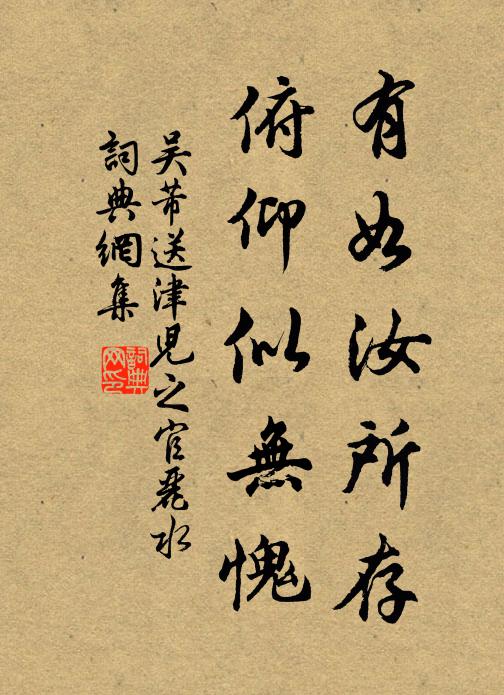 有如汝所存
俯仰似無愧
吴芾送津兒之官麗水
詞典網集
詞典网印